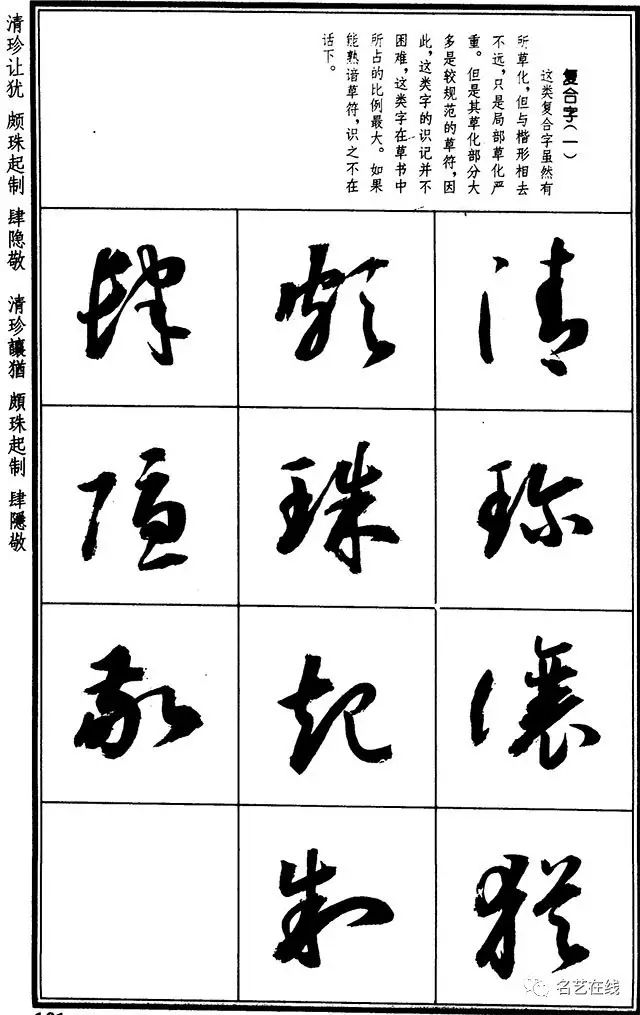 复合字（一）
这类复合字虽然有
所草化，但与楷形相去
不远，只是局部草化严
重。但是其草化部分大
多是较规范的草符，因
此，这类字的识记并不
困难，这类字在草书中
所占的比例最大。如果
能熟谙草符，识之不在
话下。
清
珍
讓
猶
頗
珠
起
制
肆
隱
敬
清珍让犹 颇珠起制 肆隐敬 清珍讓猶 頗珠起制 肆隱敬
名艺在线